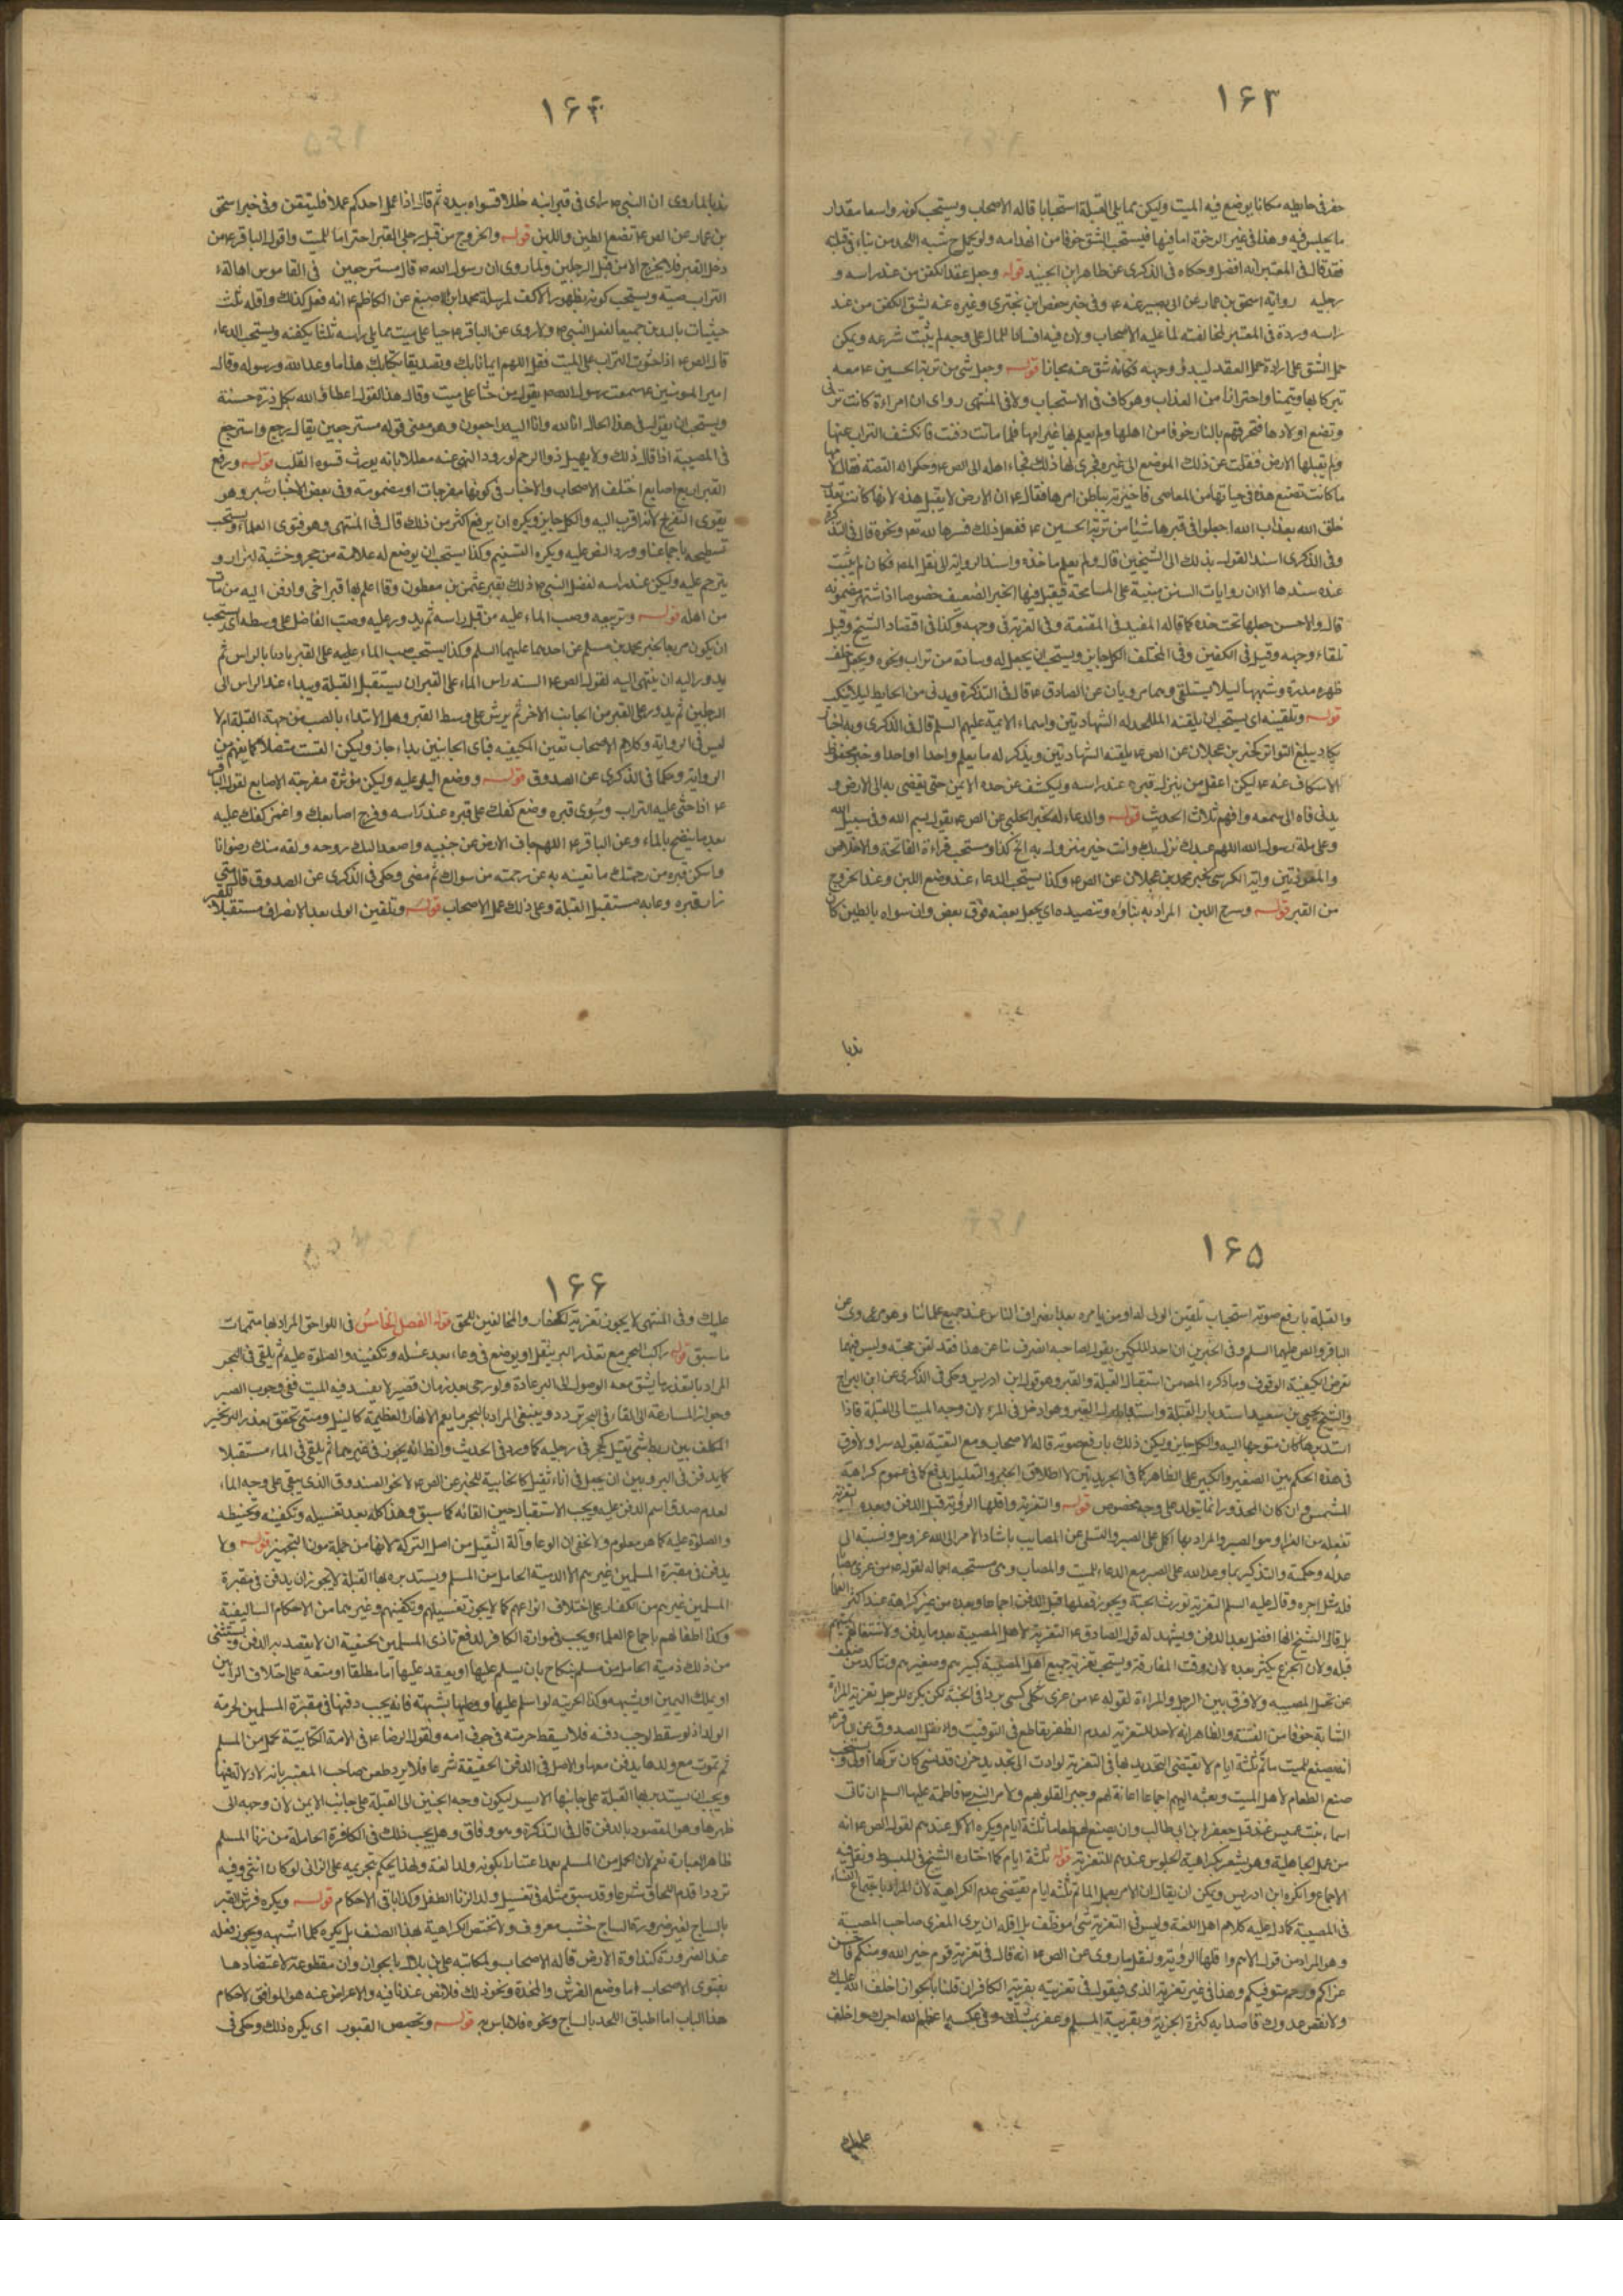 ۱۶۳
حفر فی حایطه مکانا یوضع فیه المیت ولیکن مما یلی القبلة استحبابا قاله الاصحاب ویستحب کونه واسعا مقدار
ما یجلس فیه وهذا فی غیر الرخوة اما فیها فیستحب الشق خوفا من انهدامه ولو عمل شبه اللحد من بناء فی قبلته
فقد قال فی المعتبر انه افضل وحکاه فی الذکری عن ظاهر ابن الجنید قوله وجعل عقد الکفن من عند راسه و
رجلیه روایة اسحق بن عمار عن ابی بصیر عنه ع وفی خبر حفص ابن بختری وغیره عنه یشق الکفن من عند
راسه ورده فی المعتبر لمخالفته لما علیه الاصحاب ولان فیه افسادا للمال علی وجه لم یثبت شرعه ویمکن
حمل الشق علی ارادة حمل العقد لیبدو وجهه فکانه شق عنه مجازا قوله وجعل شی من تربة الحسین ع معه
تبرکا بها وتیمنا واحترازا من العذاب وهو کاف فی الاستحباب ولا فی المنتهی روی ان امراءة کانت تزنی
وتضع اولادها فتحرقهم بالنار خوفا من اهلها ولم یعلم بها غیر امها فلما ماتت دفنت فانکشف التراب عنها
ولم یقبلها الارض فنقلت عن ذلک الموضع الی غیره فجری لها ذلک فجاء اهلها الی الص ع وحکوا له القصة فقال لامها
ما کانت تصنع هذه فی حیاتها من المعاصی فاخبرته بباطن امرها فقال ع ان الارض لا یقبل هذه لانها کانت تعذب
خلق الله بعذاب الله اجعلوا فی قبرها شیئا من تربة الحسین ع ففعل ذلک فسترها الله تع ونحوه قال فی التذکره
وفی الذکری اسند القول بذلک الی الشیخین قال ولم یعلم ماخذه واسند الروایة الی نقل المص فکان لم یثبت
عنده سندها الا ان روایات السنن مبنیة علی المسامحة فیقبل فیها الخبر الضعیف خصوصا اذا اشتهر مضمونه
قال والاحسن جعلها تحت خده کما قاله المفید فی المقنعة وفی العزیة فی وجهه وکذا فی اقتصاد الشیخ وقیل
تلقاء وجهه وقیل فی الکفین وفی المختلف الکل جایز ویستحب ان یجعل له وسادة من تراب ونحوه ویجعل خلف
ظهره مدرة وشبهها لیلا یستلقی وهما مرویان عن الصادق ع قال فی التذکرة ویدنی من الحایط لیلا ینکب
قوله وتلقینه ای یستحب ان یلقنه الملحد له الشهادتین واسماء الائمة علیهم السلم قال فی الذکری وبه اخبار
یکاد یبلغ التواتر کخبر بن عجلان عن الص ع یلقنه الشهادتین ویذکر له ما یعلم واحدا واحدا وخبر محفوظ
الاسکاف عنه ع لیکن اعقل من ینزل قبره عند راسه ولیکشف عن خده الایمن حتی یفضی به الی الارض و
یدنی فاه الی سمعه وافهم ثلاث الحدیث قوله والدعاء له لخبر الحلبی عن الص ع یقول بسم الله وفی سبیل الله
وعلی ملة رسول الله اللهم عبدک نزل بک وانت خیر منزول به الخ کذا ویستحب قراءة الفاتحة والاخلاص
والمعوذتین وایة الکرسی لخبر محمد بن عجلان عن الص ع وکذا یستحب الدعاء عند وضع اللبن وعند الخروج
من القبر قوله وشرج اللبن المراد به بناؤه وتنضیده ای یجعل بعضه فوق بعض وان سواه بالطین کان
ندبا
۱۶۴
ندبا لما روی ان النبی ص رای فی قبر ابنه خللا فسواه بیده ثم قال اذا عمل احدکم عملا فلیتقن وفی خبر اسحق
بن عمار عن الص ع تضع الطین واللبن قوله والخروج من قبل رجلی القبر احتراما للمیت ولقول الباقر ع من
دخل القبر فلا یخرج الا من قبل الرجلین ولما روی ان رسول الله ص قال مسترجعین فی القاموس اهالة
التراب صبه ویستحب کونه بظهور الاکف لمرسلة محمد ابن الاصبغ عن الکاظم ع انه فعل کذلک واقله ثلث
حیثیات بالیدین جمیعا لفعل النبی ص ولما روی عن الباقر ع حثا علی میت مما یلی راسه ثلثا بکفیه ویستحب الدعاء
قال الص ع اذا حثوت التراب علی المیت فقل اللهم ایمانا بک وتصدیقا بکتابک هذا ما وعد الله ورسوله وقال
امیر المومنین ع سمعت رسول الله ص یقول من حثا علی میت وقال هذا القول اعطاه الله بکل ذرة حسنة
ویستحب ان یقول فی هذا الحال انا لله وانا الیه راجعون وهو معنی قوله مسترجعین یقال رجع واسترجع
فی المصیبة اذا قال ذلک ولا یهیل ذو الرحم لورود النهی عنه معللا بانه یورث قسوة القلب قوله ورفع
القبر اربع اصابع اختلف الاصحاب والاخبار فی کونها مفرجات او مضمومة وفی بعض الاخبار شبر وهو
یقوی التفریج لانه اقرب الیه والکل جایز ویکره ان یرفع اکثر من ذلک قال فی المنتهی وهو فتوی العلماء ویستحب
تسطیحه باجماعنا وورد النص علیه ویکره التسنیم وکذا یستحب ان یوضع له علامة من حجر وخشبة لیزار و
یترحم علیه ولیکن عند راسه لفعل النبی ص ذلک بقبر عثمن بن مظعون وقال اعلم بها قبر اخی وادفن الیه من مات
من اهله قوله وتربیعه وصب الماء علیه من قبل راسه ثم یدور علیه وصب الفاضل علی وسطه ای یستحب
ان یکون مربعا لخبر محمد بن مسلم عن احدهما علیهما السلم وکذا یستحب صب الماء علیه علی القبر بادیا بالراس ثم
یدور الیه ان ینتهی الیه لقول الص ع السنة راس الماء علی القبر ان یستقبل القبلة ویبداء عند الراس الی
الرجلین ثم یدور علی القبر من الجانب الاخر ثم یرش علی وسط القبر وهل الابتداء بالصب من جهة القبلة ام لا
لیس فی الروایة وکلام الاصحاب تعیین الکیفیة فبای الجانبین بداء جاز ولیکن الصب متصلا کما یفهم من
الروایة وحکاه فی الذکری عن الصدوق قوله ووضع الید علیه ولیکن مؤثرة مفرجة الاصابع لقول الباقر
ع اذا حثی علیه التراب وسوی قبره وضع کفک علی قبره عند راسه وفرج اصابعک واغمز کفک علیه
بعد ما ینضح بالماء وعن الباقر ع اللهم جاف الارض عن جنبیه واصعد الیک روحه ولقه منک رضوانا
واسکن قبره من رحمتک ما تغنیه به عن رحمة من سواک ثم مضی وحکی فی الذکری عن الصدوق قال متی
زار قبره دعا به مستقبل القبلة وعلی ذلک عمل الاصحاب قوله وتلقین الولی بعد الانصراف مستقبلا للقبر
۱۶۵
والقبلة بارفع صوته استحباب تلقین الولی له او من یامره بعد انصراف الناس عند جمیع علمائنا وهو مروی عن
الباقر والص علیهما السلم وفی الخبرین ان احد الملکین یقول لصاحبه انصرف بنا عن هذا فقد لقن حجته ولیس فیهما
تعرض لکیفیة الوقوف وما ذکره المص من استقبال القبلة والقبر وهو قول ابن ادریس وحکی فی الذکری عن ابن البراج
والشیخ یحیی بن سعید استدبار القبلة واستقبال القبر وهو ادخل فی المرء لان وجه المیت الی القبلة فاذا
استدبرها کان متوجها الیه والکل جایز ولیکن ذلک بارفع صوته قاله الاصحاب ومع التقیة یقوله سرا ولا فرق
فی هذه الحکم بین الصغیر والکبیر علی الظاهر کما فی الجریدتین لاطلاق الخبر والتعلیل یدفع کما فی عموم کراهة
المشمس وان کان المحذور انما یتولد علی وجه مخصوص قوله والتعزیة واقلها الرؤیة قبل الدفن وبعده التعزیة
تفعلة من العزاء وهو الصبر والمراد بها الحمل علی الصبر والتسلی عن المصایب باسناد الامر الی الله عز وجل ونسبته الی
عدله وحکمته والتذکیر بما وعد الله علی الصبر مع الدعاء للمیت والمصاب وهی مستحبة اجماعا لقوله ص من عزی مصابا
فله مثل اجره وقال علیه السلم التعزیة تورث الجنة ویجوز فعلها قبل الدفن اجماعا وبعده من غیر کراهة عند اکثر العلماء
بل قال الشیخ انها افضل بعد الدفن ویشهد له قول الصادق ع التعزیة لاهل المصیبة بعد ما یدفن ولاشتغالهم بمیتهم
قبله ولان الجزع یکثر بعده لان وقت المفارقة ویستحب تعزیة جمیع اهل المصیبة کبیرهم وصغیرهم ویتاکد من ضعف
عن تحمل المصیبة ولا فرق بین الرجل والمراءة لقوله ع من عزی ثکلی کسی بردا فی الجنة لکن یکره للرجل تعزیة المراة
الشابة خوفا من الفتنة والظاهر انه لا حد للتعزیة لعدم الظفر بقاطع فی التوقیت وان نقل الصدوق عن الباقر ع
انه یصنع للمیت ماتم ثلثة ایام لا تقتضی التحدید لها فی التعزیة لو ادت الی تجدید حزن قد نسی کان ترکها اولی ویستحب
صنع الطعام لاهل المیت وبعثه الیهم اجماعا اعانة لهم وجبرا لقلوبهم ولامر النبی ص فاطمة علیها السلم ان تاتی
اسماء بنت عمیس عند قتل جعفر ابن ابی طالب وان یصنع لهم طعاما ثلثة ایام ویکره الاکل عندهم لقول الص ع انه
من عمل الجاهلیة وهو یشعر بکراهیة الجلوس عندهم للتعزیة قوله ثلثة ایام کما اختاره الشیخ فی المبسوط ونقل فیه
الاجماع وانکره ابن ادریس ویمکن ان یقال ان الامر بعمل الماتم ثلثة ایام یقتضی عدم الکراهیة لان المراد به اجتماع النساء
فی المصیبة کما دل علیه کلام اهل اللغة ولیس فی التعزیة شیء موظف بل اقله ان یری المعزی صاحب المصیبة
وهو المراد من قول الامم واقلها الرؤیة ولنقل ما روی عن الص ع انه قال فی تعزیة قوم خیر الله وهنکم فاحسن
عزاکم ورحم متوفیکم وهذا فی غیر تعزیة الذمی فیقول فی تعزیته بقریبه الکافر ان قلنا بالجواز اخلف الله علیک
ولا نقص عددک قاصدا به کثرة الجزیة وبقریبه المسلم وغفر لمیتک وفی عکسه اعظم الله اجرک واخلف
علیک
۱۶۶
علیک وفی المنتهی لا یجوز تعزیة الکفار والمخالفین للحق قوله الفصل الخامس فی اللواحق المراد بها متممات
ما سبق قوله راکب البحر مع تعذر البر یثقل او یوضع فی وعاء بعد غسله وتکفینه والصلوة علیه ثم یلقی فی البحر
المراد بالتعذر ما یشق معه الوصول الی البر عادة ولو رجی بعد زمان قصیر لا یفسد فیه المیت ففی وجوب الصبر
وجواز المسارعة الی القاء فی البحر تردد وینبغی المراد بالبحر ما یعم الانهار العظیمة کالنیل ومتی تحقق تعذر البر تخیر
المکلف بین ربط شی ثقیل کحجر فی رجلیه کما ورد فی الحدیث والظ انه یجوز فی غیرهما ثم یلقی فی الماء مستقبلا
کما یدفن فی البر وبین ان یجعل فی اناء ثقیل کالخابیة للخبر عن الص ع لا نحو الصندوق الذی یبقی علی وجه الماء
لعدم صدق اسم الدفن علیه ویجب الاستقبال حین القائه کما سبق وهذا کله بعد تغسیله وتکفینه وتحنیطه
والصلوة علیه کما هو معلوم ولا یخفی ان الوعاء وآلة الثقیل من اصل الترکة لانها من جملة مون التجهیز قوله ولا
یدفن فی مقبرة المسلمین غیرهم الا الذمیة الحامل من المسلم ویستدبر بها القبلة لا یجوز ان یدفن فی مقبرة
المسلمین غیرهم من الکفار علی اختلاف انواعهم کما لا یجوز تغسیلهم وتکفینهم وغیرهما من الاحکام السالیفیة
وکذا اطفالهم باجماع العلماء ویجب فی مواراة الکافر لدفع تاذی المسلمین بجیفته ان لا یقصد به الدفن ویستثنی
من ذلک ذمیة الحامل من مسلم بنکاح بان یسلم علیها او یعقد علیها اما مطلقا او متعة علی اختلاف الراین
او بملک الیمین او شبهه وکذا الحربیة لو اسلم علیها ووطیها بشبهة فانه یجب دفنها فی مقبرة المسلمین لحرمة
الولد اذ لو سقط لوجب دفنه فلا یسقط حرمته فی جوف امه ولقول الرضا ع فی الامة الکتابیة تحمل من المسلم
ثم تموت مع ولدها یدفن معها والاصل فی الدفن الحقیقة شرعا فلا یرد طعن صاحب المعتبر بانه لا دلالة فیها
ویجب ان یستدبر بها القبلة علی جانبها الایسر لیکون وجه الجنین الی القبلة علی جانبه الایمن لان وجهه الی
ظهرها وهو المقصود بالدفن قال فی التذکرة وهو وفاق وهل یجب ذلک فی الکافرة الحاملة من زنا المسلم
ظاهر العبارة نعم لان الحمل من المسلم بعد اعتبار بکونه ولدا لغة ولهذا یحکم بتحریمه علی الزانی لو کان انثی وفیه
تردد اقدم التحاق شرعا وقد سبق مثله فی تغسیل ولد الزنا الطفل وکذا باقی الاحکام قوله ویکره فرش القبر
بالساج لغیر ضرورة الساج خشب معروف ولا تختص الکراهیة بهذا الصنف بل یکره کلما اشبهه ویجوز فعله
عند الضرورة کنداوة الارض قاله الاصحاب ولمکاتبة علی بن بلال بالجواز وان مقطوعة لاعتضادها
بفتوی الاصحاب اما وضع الفرش والمخدة ونحو ذلک فلا نص عندنا فیه والاعراض عنه هو الموافق لاحکام
هذا الباب اما اطباق اللحد بالساج ونحوه فلا باس به قوله وتجصیص القبور ای یکره ذلک وحکی فی